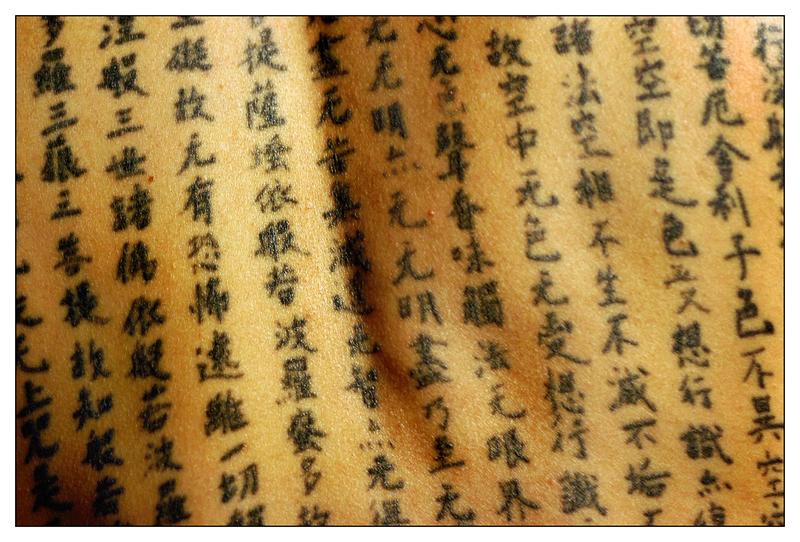 行深
切苦厄舍利子色不異
空空即是色受想行識亦復
諸法空相不生不滅不垢
故空中无色无受想行識
无色聲香味觸法无眼界
无无明亦无无明盡乃至无
盡无苦集滅道无智亦无得
菩提薩埵依般若波羅蜜多故
礙故无有恐怖遠離一切
涅槃三世諸佛依般若波羅
多羅三藐三菩提故知般若
是无上咒是